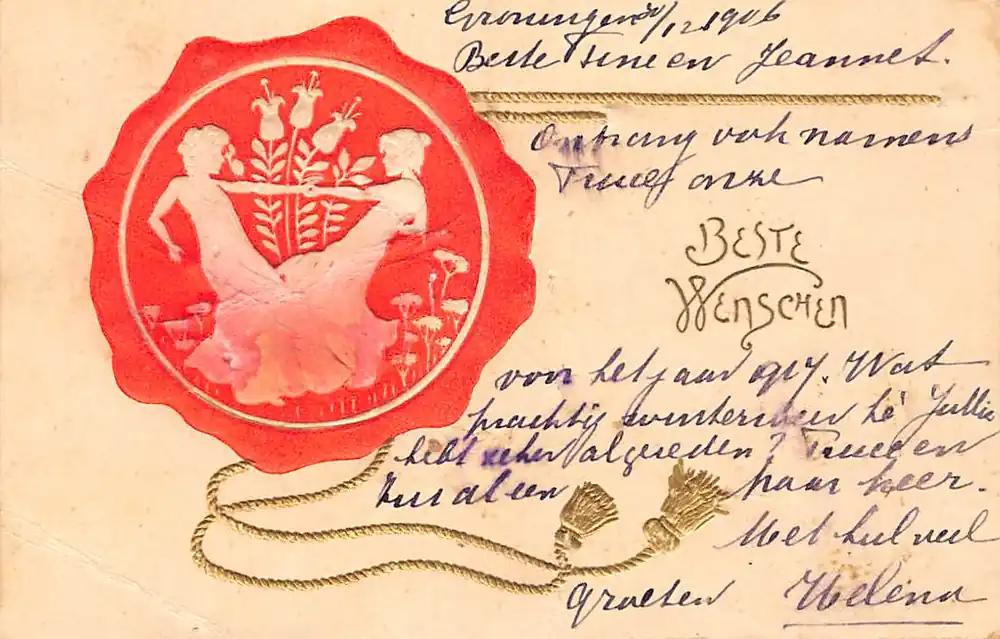 Groningen 30/12 1906
Beste Tine en Jeannet.
Ontvang ook namens
Truus onze
BESTE
WENSCHEN
voor het jaar 1917. Wat
prachtig winterweer hè Jullie
hebt zeker al gereden? Truus en
Zus al een paar keer.
Met heel veel
groeten Helena